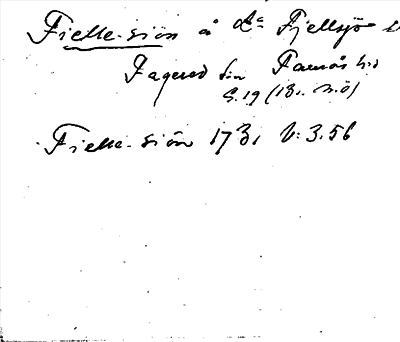 Fjelle-siön å La Fjellsjö
Fagered sn Faurås hd
G. 19 (1 B. n. ö)
Fielle-siön 1731 V: 3.56